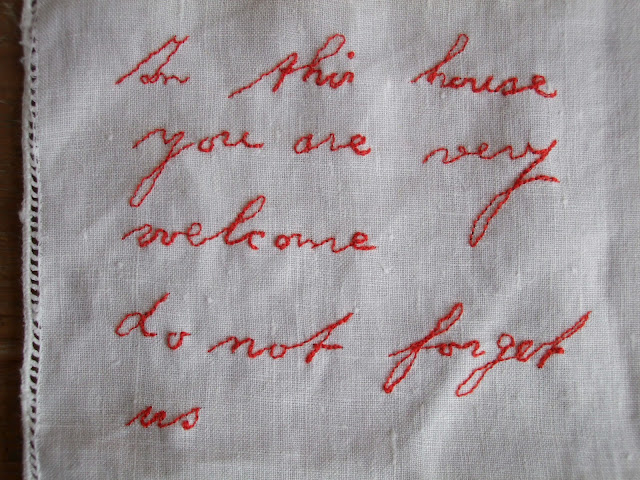 In this house
you are very
welcome
do not forget
us